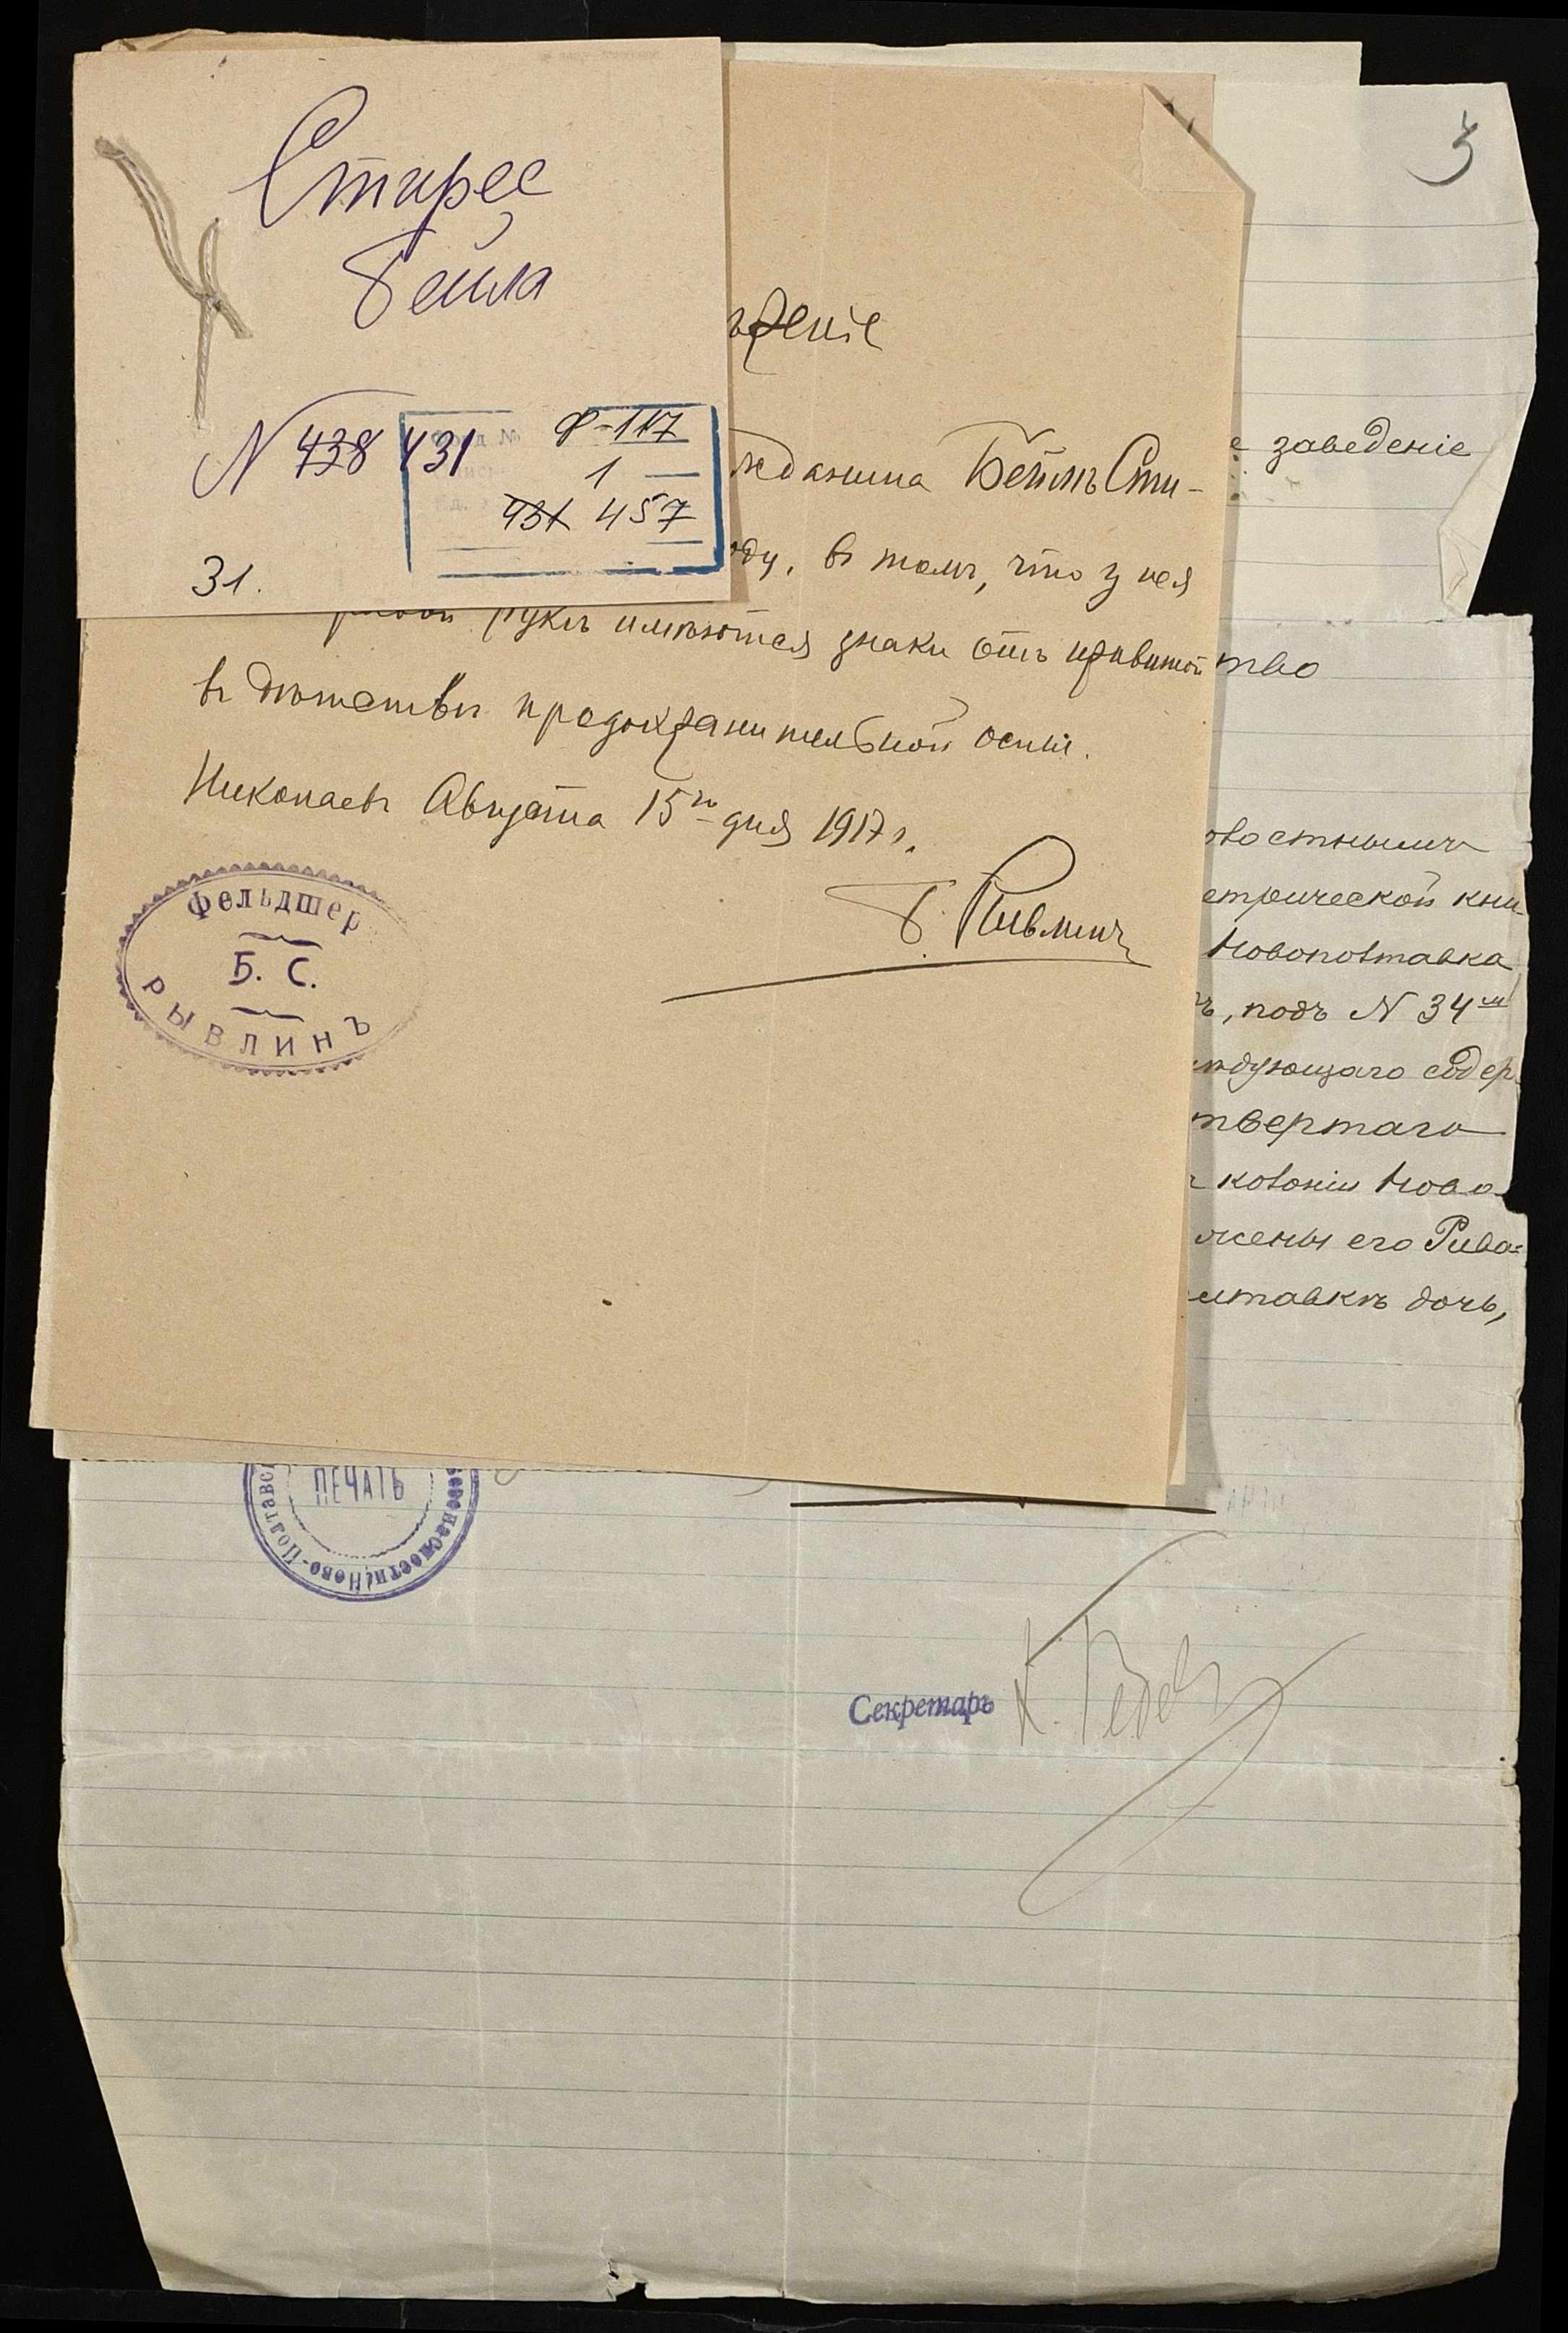 Стирес
Бейла
N 438 431
Ф-117
1
431 457
31.
3
ѣреніе
жданина Бейлѣ Сти-
оду, въ томъ, что у нея
рукѣ имѣются знаки отъ привитой
въ дѣтствѣ предохранительной оспы.
Николаевъ Августа 15го дня 1917 г.
Б. Рывлинъ
Фельдшер
Б. С.
РЫВЛИНЪ
е заведеніе
тво
етрической кни-
Новополтавка
ъ, подъ N 34м
ѣдующаго содер-
твертаго
колоніи Ново-
жены его Рива-
лтавкѣ дочь,
ПЕЧАТЬ
Ново-Полтавс
Секретарь